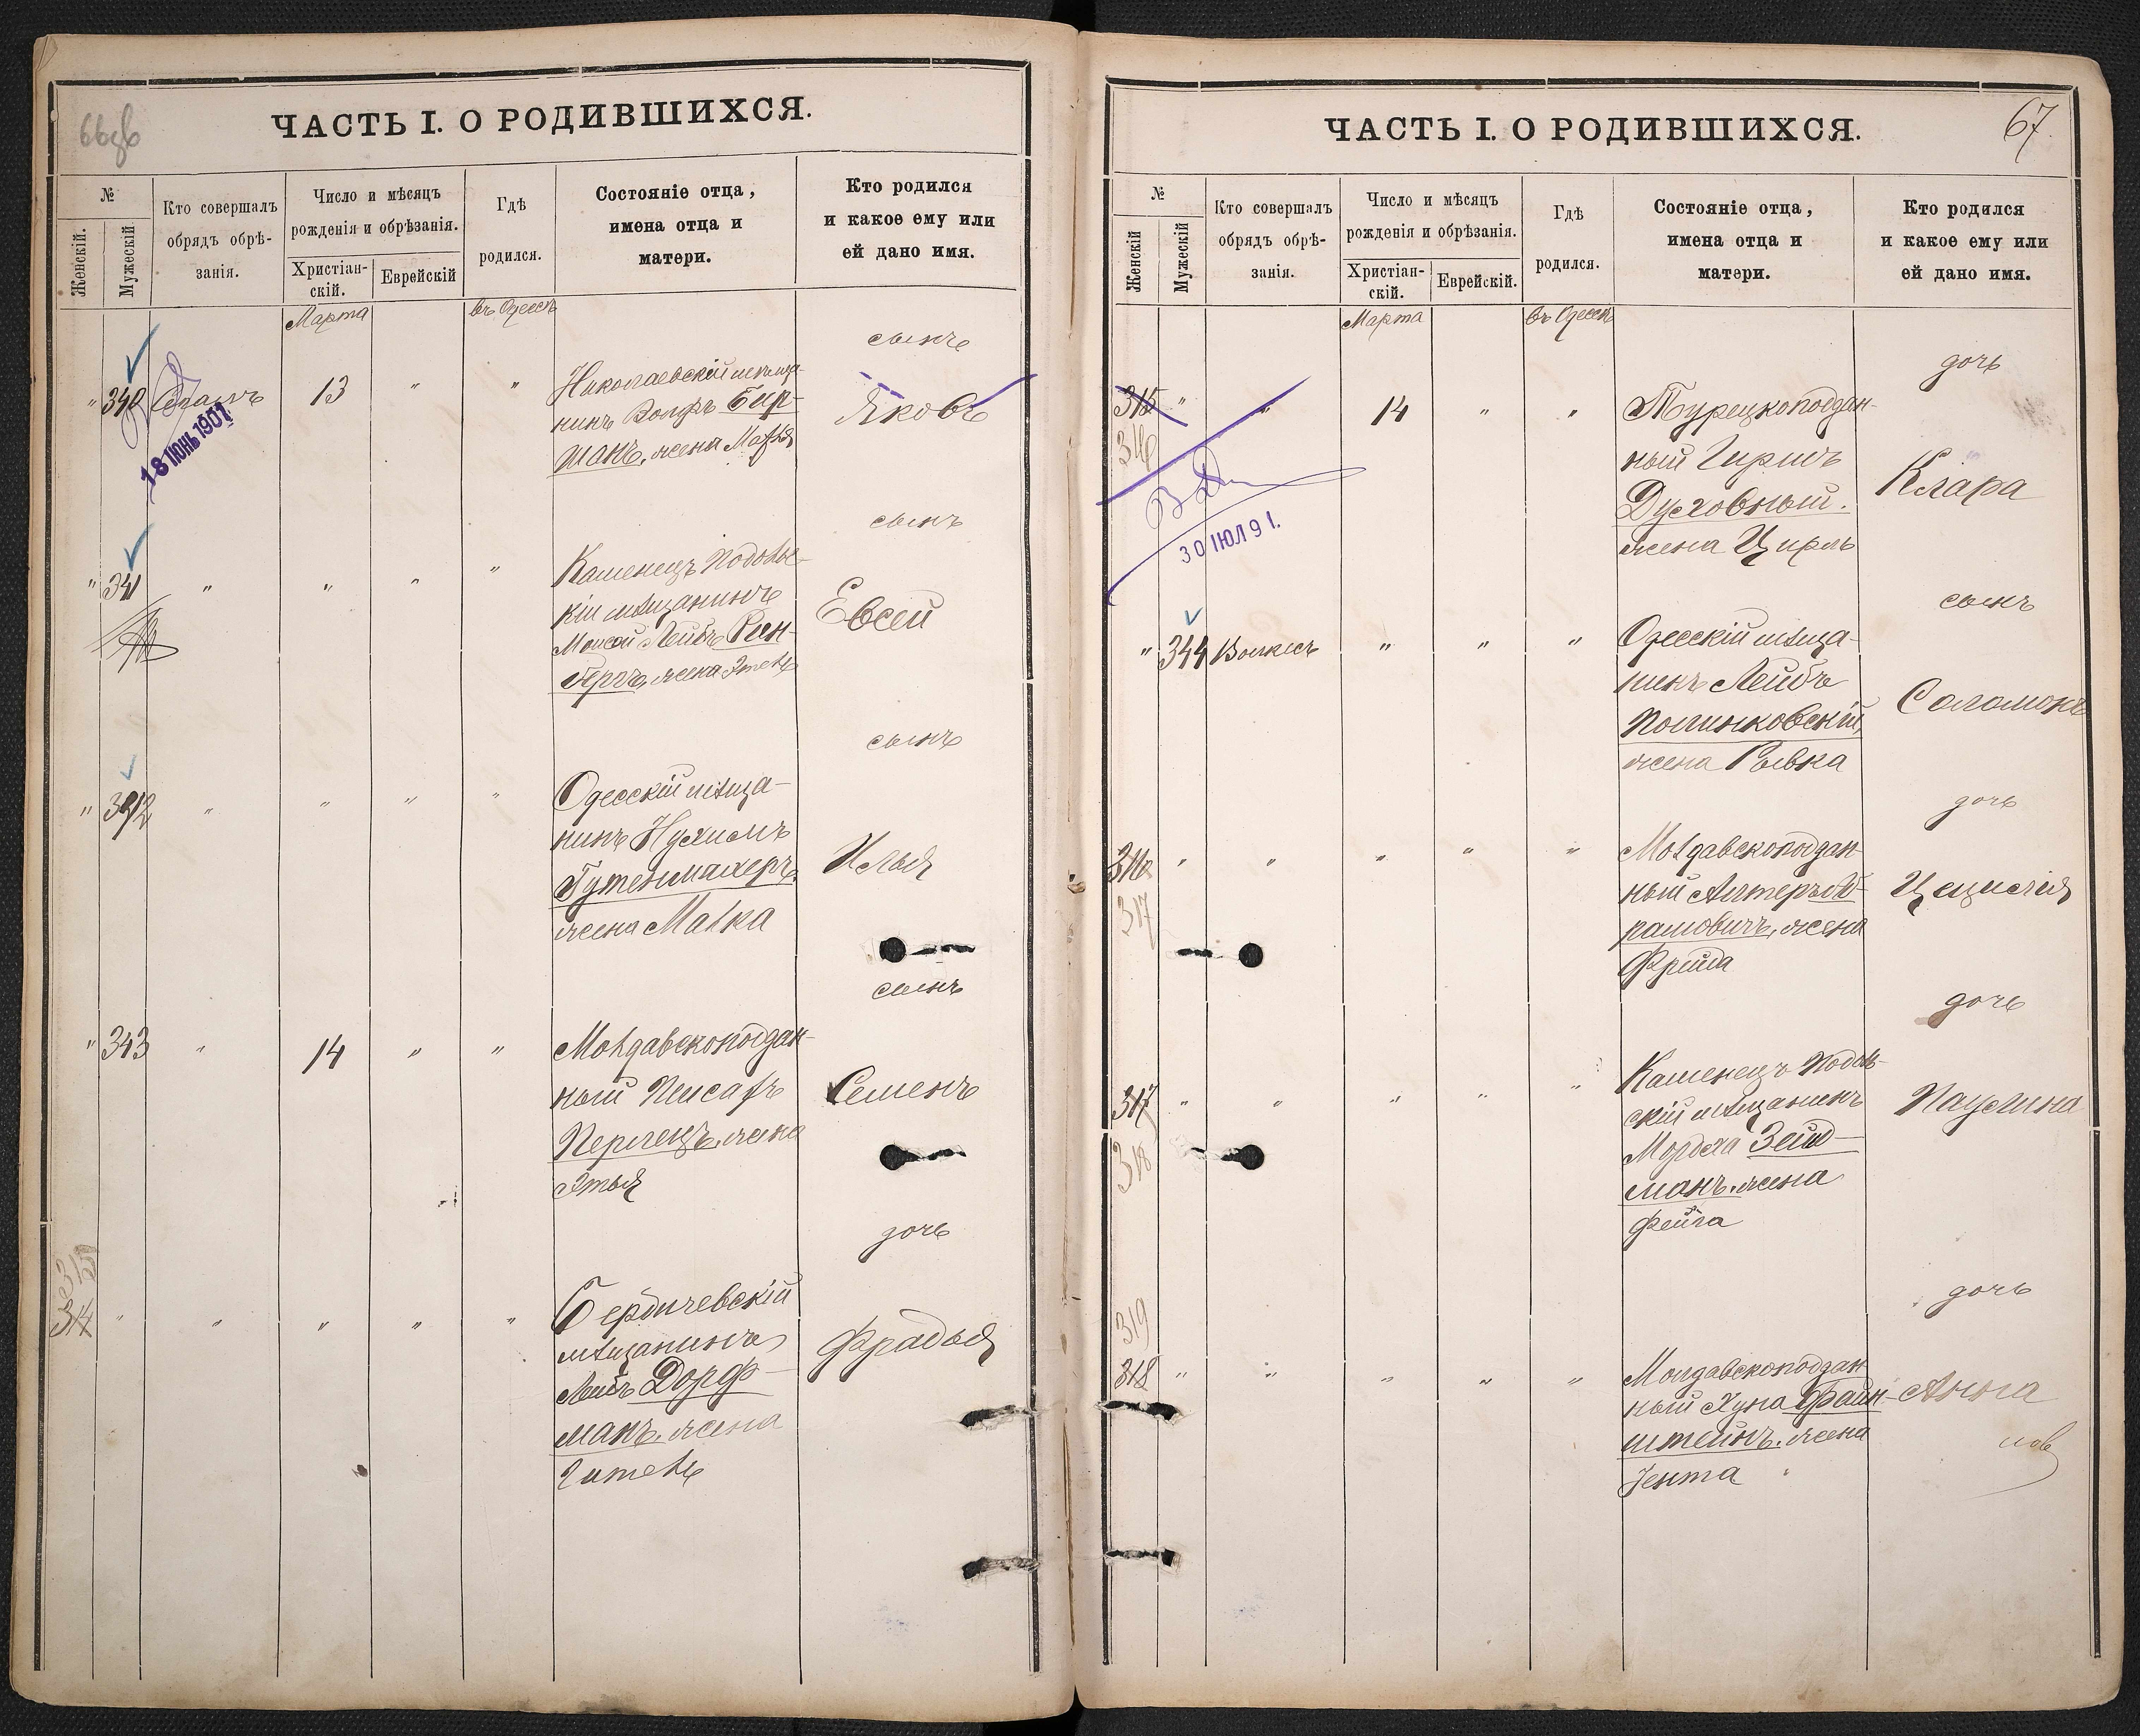 66об
ЧАСТЬ I. О РОДИВШИХСЯ.
№
Женскій.
Мужескій
Кто совершалъ
обрядъ обрѣ-
занія.
Число и мѣсяцъ
рожденія и обрѣзанія.
Христіан-
скій.
Еврейскій
Гдѣ
родился.
Состояніе отца,
имена отца и
матери.
Кто родился
и какое ему или
ей дано имя.
Марта
въ Одессѣ
сынъ
" 340
13 " "
Николаевскій мѣща-
нинъ Вольфъ Бир-
манъ, жена
Яковъ
18 ІЮНЬ 1907
сынъ
" 341 " " " "
Каменецъ Подоль-
кій мѣщанинъ
Моисей Лейбъ Рен-
жена Этель
Евсей
сынъ
" 342 " " " "
Одесскій мѣща-
нинъ Нухимъ
Гутенмахеръ,
жена Малка
Илья
сынъ
" 343 " 14 " "
Молдавскоподдан-
ный Пейсахъ
жена
Этья
Семенъ
дочь
315
314 " " " " "
Бердичевскій
мѣщанинъ
Лейбъ Дорф-
манъ, жена
Гитель
Фрадья
67.
ЧАСТЬ I. О РОДИВШИХСЯ.
№
Женскій
Мужескій
Кто совершалъ
обрядъ обрѣ-
занія.
Число и мѣсяцъ
рожденія и обрѣзанія.
Христіан-
скій.
Еврейскій.
Гдѣ
родился.
Состояніе отца,
имена отца и
матери.
Кто родился
и какое ему или
ей дано имя.
Марта
въ Одессѣ
дочь
315 " " 14 " "
316
Турецкоподдан-
ный Гиршъ
Духовный.
жена Цирль
Клара
30 ІЮЛ 91.
сынъ
" 344 " " "
Одесскій мѣща-
нинъ Лейбъ
Полинковскій,
жена Ривка
Соломонъ
дочь
316 " " " " "
317
Молдавскоподдан-
ный Алтеръ Аб-
рамовичъ, жена
Фрейда
Цецилія
дочь
317 " " " " "
318
Каменецъ Подоль-
скій мѣщанинъ
Мордха Зейд-
манъ, жена
Фейга
Паулина
дочь
319
318 " " " " "
Молдавскоподдан
ный Хуна Файн-
штейнъ, жена
Іента
Анна